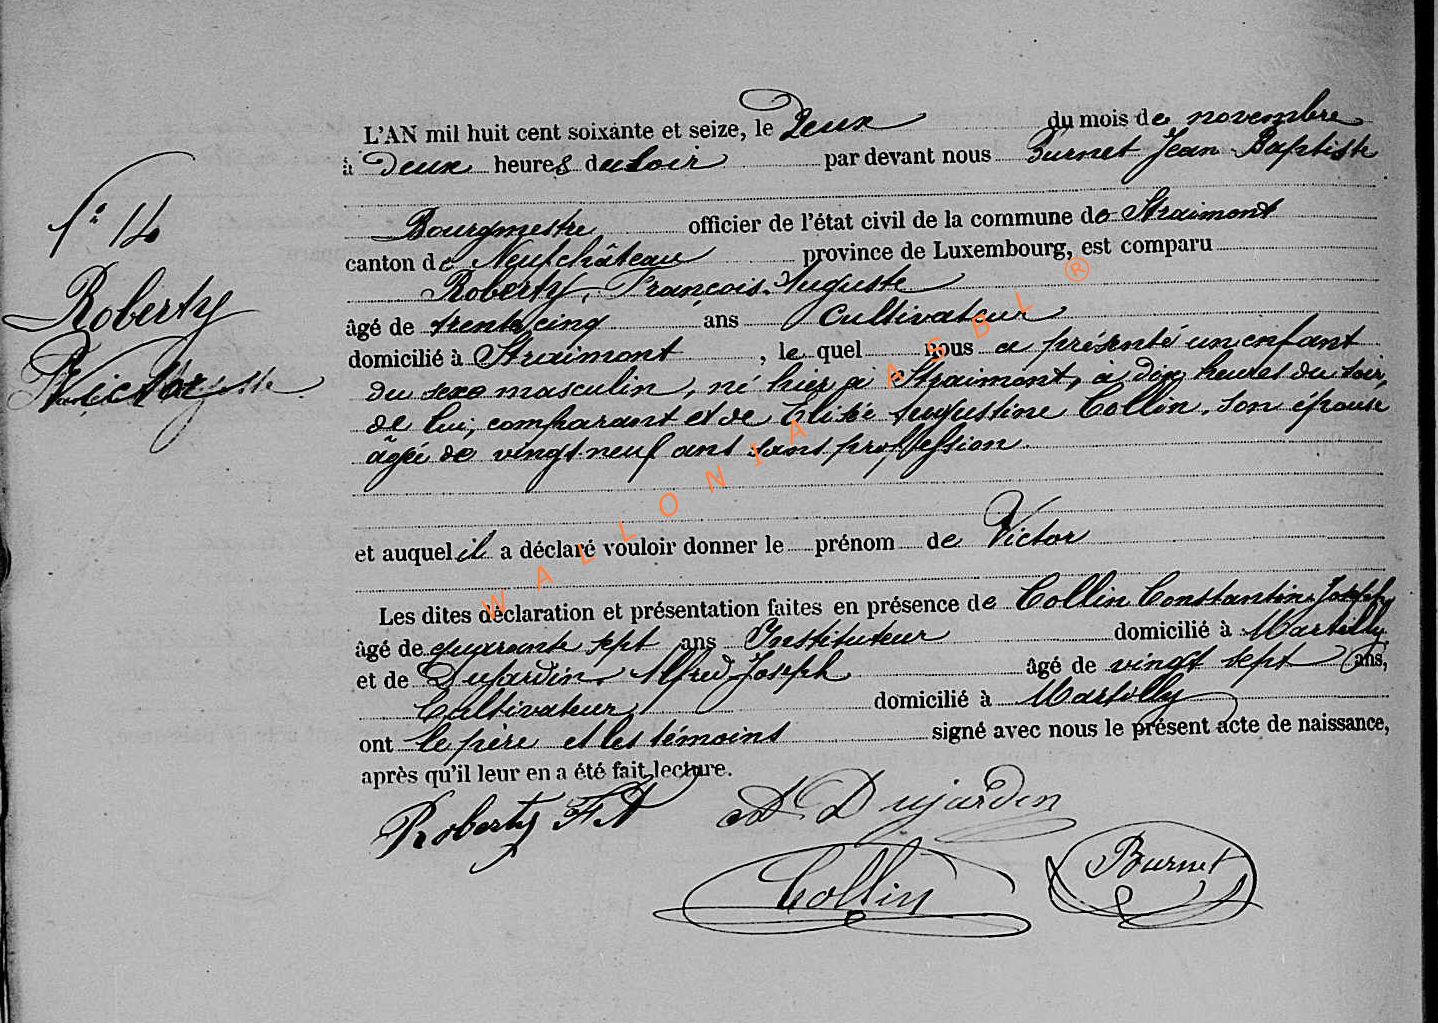 L'AN mil huit cent soixante et seize, le Deux du mois de novembre
à Deux heures du soir par devant nous Burnet Jean Baptiste
Bourgmestre officier de l'état civil de la commune de Straimont
canton de Neufchâteau province de Luxembourg, est comparu
Roberty, François Auguste
âgé de trente cinq ans Cultivateur
domicilié à Straimont, le quel nous a présenté un enfant
du sexe masculin, né hier à Straimont, à dix heures du soir,
de lui, comparant et de Elisée Augustine Collin, son épouse
âgée de vingt neuf ans sans proffession
et auquel il a déclaré vouloir donner le prénom de Victor
Les dites déclaration et présentation faites en présence de Collin Constantin Joseph
âgé de quarante sept ans Instituteur domicilié à Martilly
et de Dujardin Alfred Joseph âgé de vingt sept ans,
Cultivateur domicilié à Martilly
ont le père et les témoins signé avec nous le présent acte de naissance,
après qu'il leur en a été fait lecture.
Roberty FA
A Dujardin
Collin
Burnet
14
Roberty
Victor
WALLONIA ASBL ®